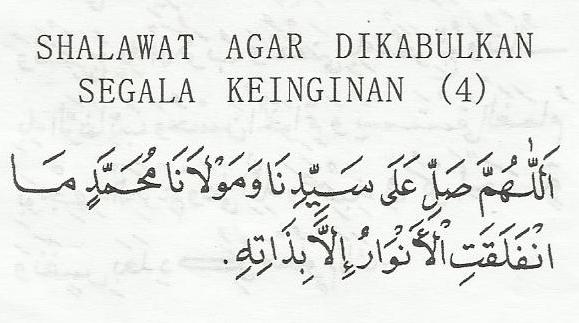 SHALAWAT AGAR DIKABULKAN
SEGALA KEINGINAN (4)
اَللّٰهُمَّ صَلِّ عَلَى سَيِّدِنَا وَمَوْلَانَا مُحَمَّدٍ مَا
انْفَلَقَتِ الْأَنْوَارُ إِلَّا بِذَاتِهِ.